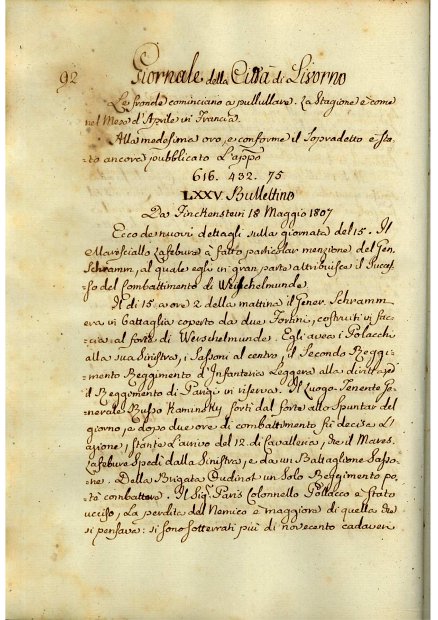 92 Giornale della Città di Livorno
Le fronde cominciano a pullullare. La Stagione è come
nel Mese d'Aprile in Francia.
Alla medesima ora, e conforme il Sopradetto è sta-
to ancora pubblicato L'app.o
616. 432. 75
LXXV Bullettino
Da Finckenstein 18 Maggio 1807
Ecco de nuovi dettagli sulla giornata del 15. Il
Maresciallo Lafebure à fatto particolar menzione del Gen.
Schramm, al quale egli in gran parte attribuisce il Succes-
so del Combattimento di Weischelmunde.
Il dì 15 a ore 2 della mattina il Gener. Schramm
era in battaglia coperto da due Fortini, costruiti in fac-
cia al forte di Weischelmunde. Egli avea i Polacchi
alla sua Sinistra, i Sassoni al centro, il Secondo Reggi-
mento Reggimento d'Infanteria Leggera alla diritta, ed
il Reggimento di Parigi in riserva. Il Luogo-Tenente Ge-
nerale Russo Kaminsky sortì dal forte allo Spuntar del
giorno, e dopo due ore di combattimento fù decisa L'a-
zione, stante L'arrivo del 12. di Cavalleria, che il Mares.
Lafebure Spedì dalla Sinistra, e da un Battaglione Sasso-
ne. Della Brigata Oudinot un Solo Reggimento po-
tè combattere. Il Sig. Paris Colonnello Pollacco è Stato
ucciso, La perdita del Nemico è maggiore di quella che
si pensava: si sono sotterrati più di novecento cadaveri